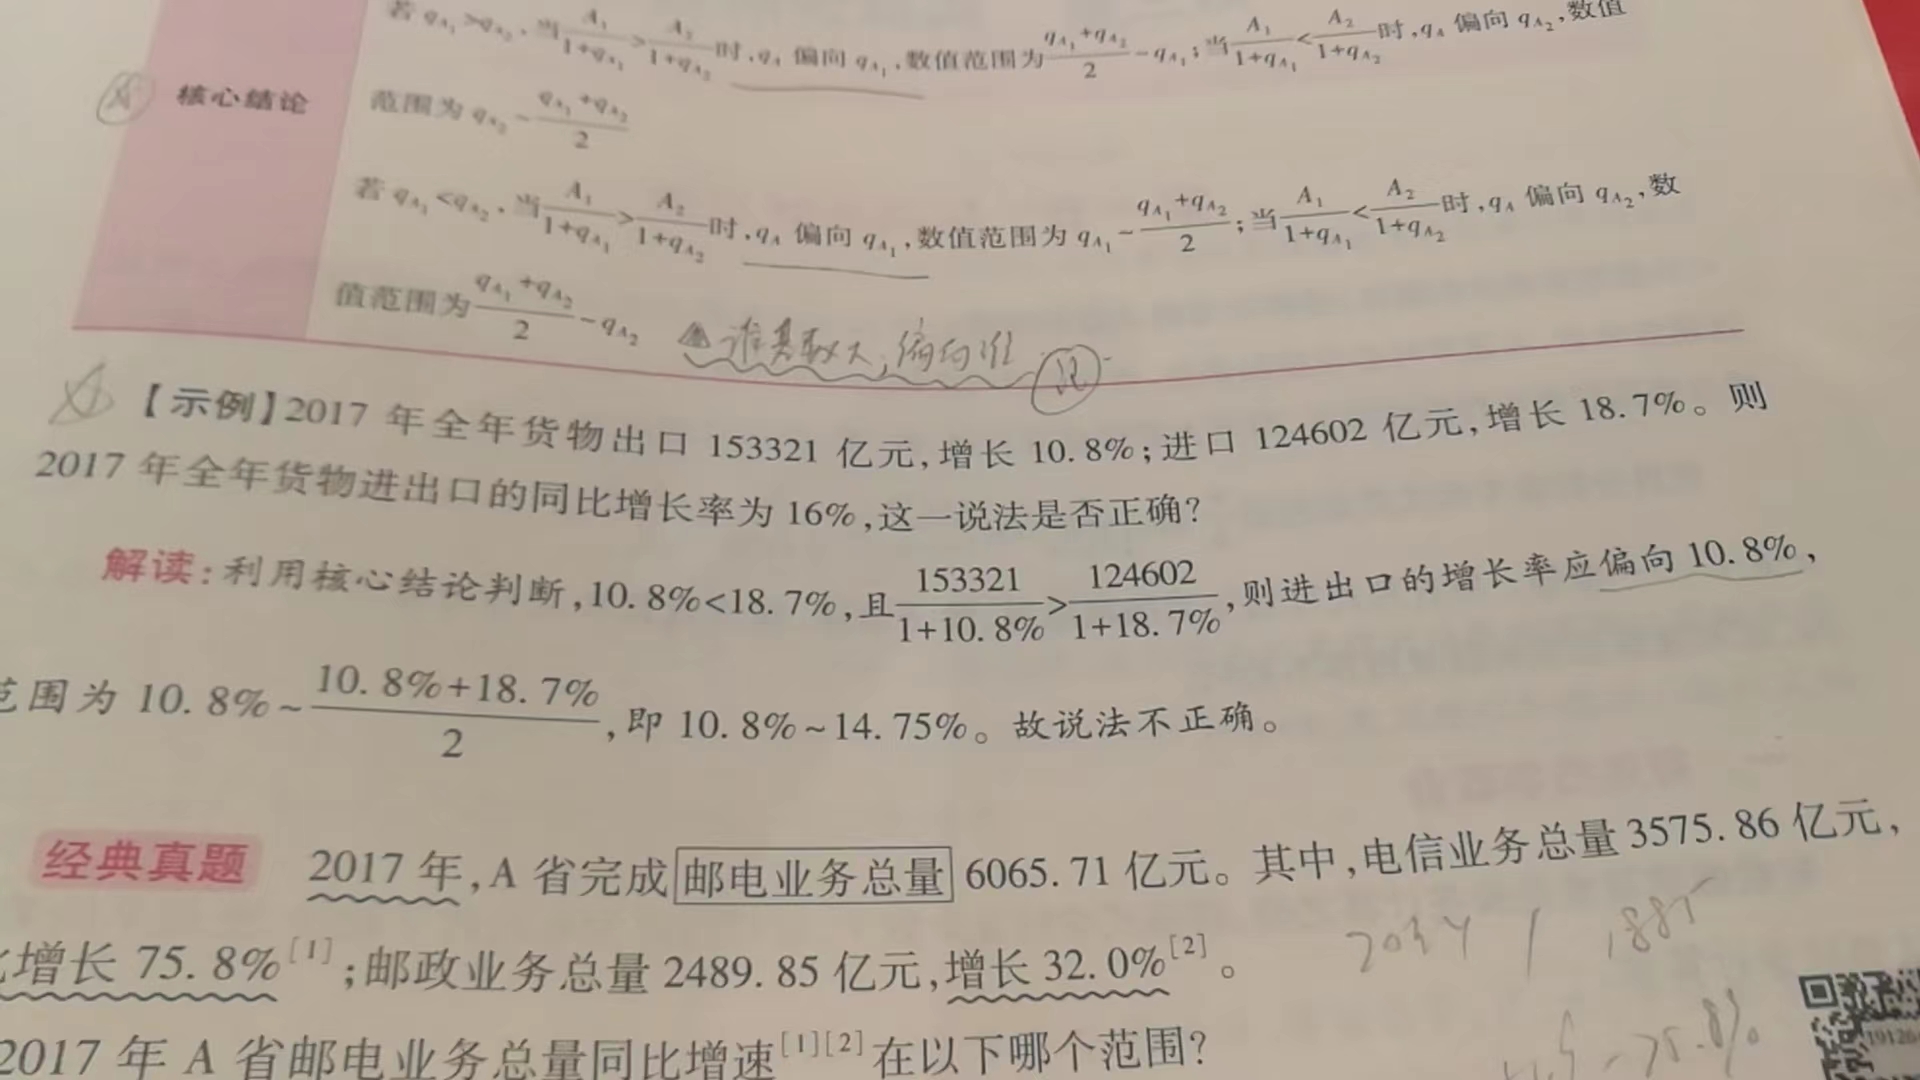 若 qA₁>qA₂,当A₁/(1+qA₁)>A₂/(1+qA₂)时,qA 偏向 qA₁,数值范围为(qA₁+qA₂)/2~qA₁;当A₁/(1+qA₁)<A₂/(1+qA₂)时,qA 偏向 qA₂,数值
核心结论
范围为 qA₂~(qA₁+qA₂)/2
若 qA₁<qA₂,当A₁/(1+qA₁)>A₂/(1+qA₂)时,qA 偏向 qA₁,数值范围为 qA₁~(qA₁+qA₂)/2;当A₁/(1+qA₁)<A₂/(1+qA₂)时,qA 偏向 qA₂,数
值范围为(qA₁+qA₂)/2~qA₂
谁基数大,偏向谁
【示例】2017 年全年货物出口 153321 亿元,增长 10.8%;进口 124602 亿元,增长 18.7%。则
2017 年全年货物进出口的同比增长率为 16%,这一说法是否正确?
解读:利用核心结论判断,10.8%<18.7%,且153321/(1+10.8%)>124602/(1+18.7%),则进出口的增长率应偏向 10.8%,
范围为 10.8%~(10.8%+18.7%)/2,即 10.8%~14.75%。故说法不正确。
经典真题 2017 年,A 省完成邮电业务总量 6065.71 亿元。其中,电信业务总量 3575.86 亿元,
比增长 75.8%[1];邮政业务总量 2489.85 亿元,增长 32.0%[2]。
2034 / 1885
2017 年 A 省邮电业务总量同比增速[1][2]在以下哪个范围?
~75.8%